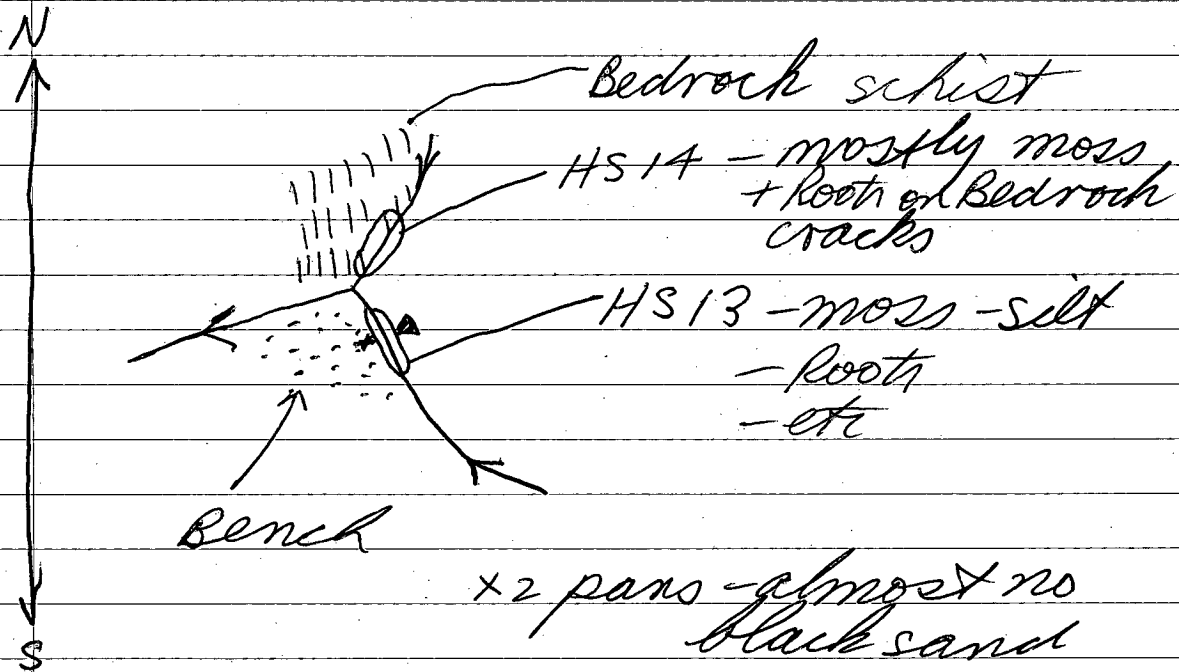 N
Bedrock schist
HS14 - mostly moss
+ Roots on Bedrock
cracks
HS13 - moss - silt
- Roots
- etc
Bench
x2 pans - almost no
black sand
S